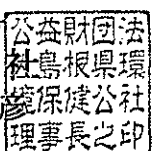 公益財団法
島根県環
保健公社
理事長之印
社
彦